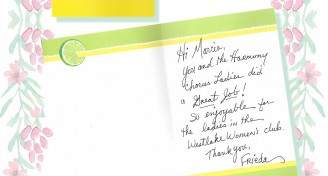 Hi Marcia,
You and the Harmony
Chorus Ladies did
a Great Job!
So enjoyable for
the ladies in the
Westlake Women's Club.
Thank you,
Frieda